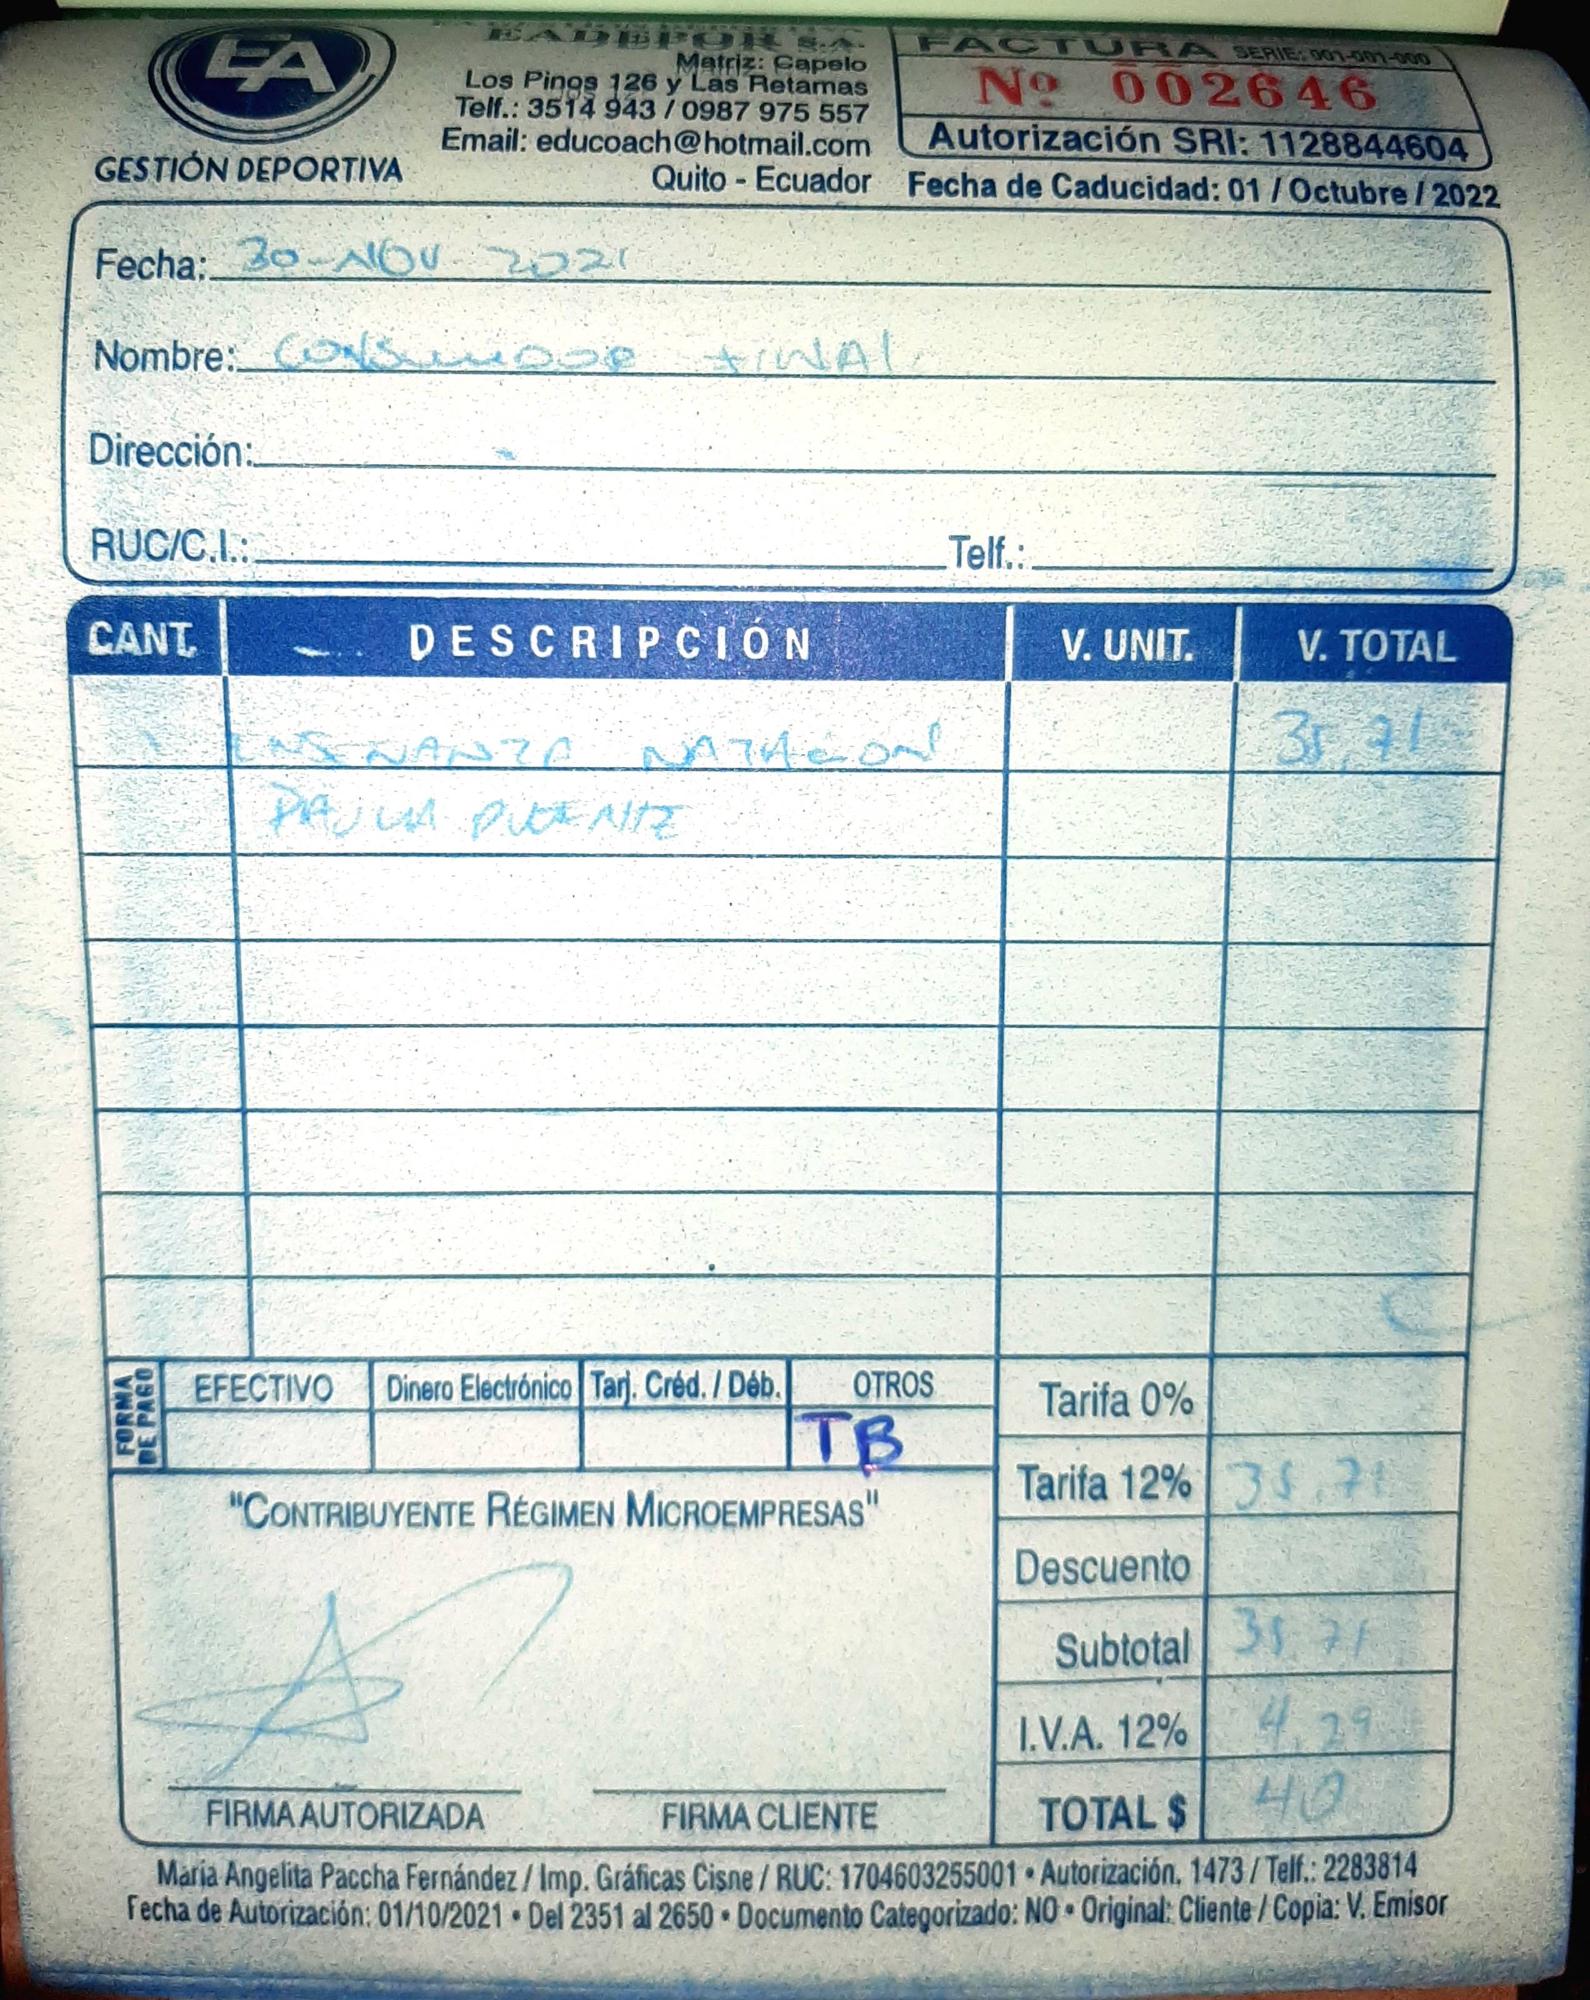 EA
GESTIÓN DEPORTIVA
EADEPOR S.A.
Matriz: Capelo
Los Pinos 126 y Las Retamas
Telf.: 3514 943 / 0987 975 557
Email: educoach@hotmail.com
Quito - Ecuador
FACTURA SERIE: 001-001-000
Nº 002646
Autorización SRI: 1128844604
Fecha de Caducidad: 01 / Octubre / 2022
Fecha: 30-NOV-2021
Nombre: CONSUMIDOR FINAL
Dirección:
RUC/C.I.: Telf.:
CANT. DESCRIPCIÓN V. UNIT. V. TOTAL
ENSENANZA NATACION 35,71
PAULA PUENTE
FORMA DE PAGO EFECTIVO Dinero Electrónico Tarj. Créd. / Déb. OTROS
TB
Tarifa 0%
Tarifa 12% 35.71
Descuento
Subtotal 35.71
I.V.A. 12% 4.29
TOTAL $ 40
"CONTRIBUYENTE RÉGIMEN MICROEMPRESAS"
FIRMA AUTORIZADA FIRMA CLIENTE
María Angelita Paccha Fernández / Imp. Gráficas Cisne / RUC: 1704603255001 • Autorización. 1473 / Telf.: 2283814
Fecha de Autorización: 01/10/2021 • Del 2351 al 2650 • Documento Categorizado: NO • Original: Cliente / Copia: V. Emisor